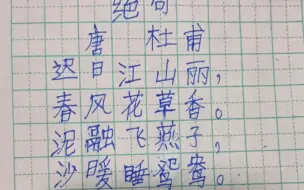 绝句
唐 杜甫
迟日江山丽，
春风花草香。
泥融飞燕子，
沙暖睡鸳鸯。